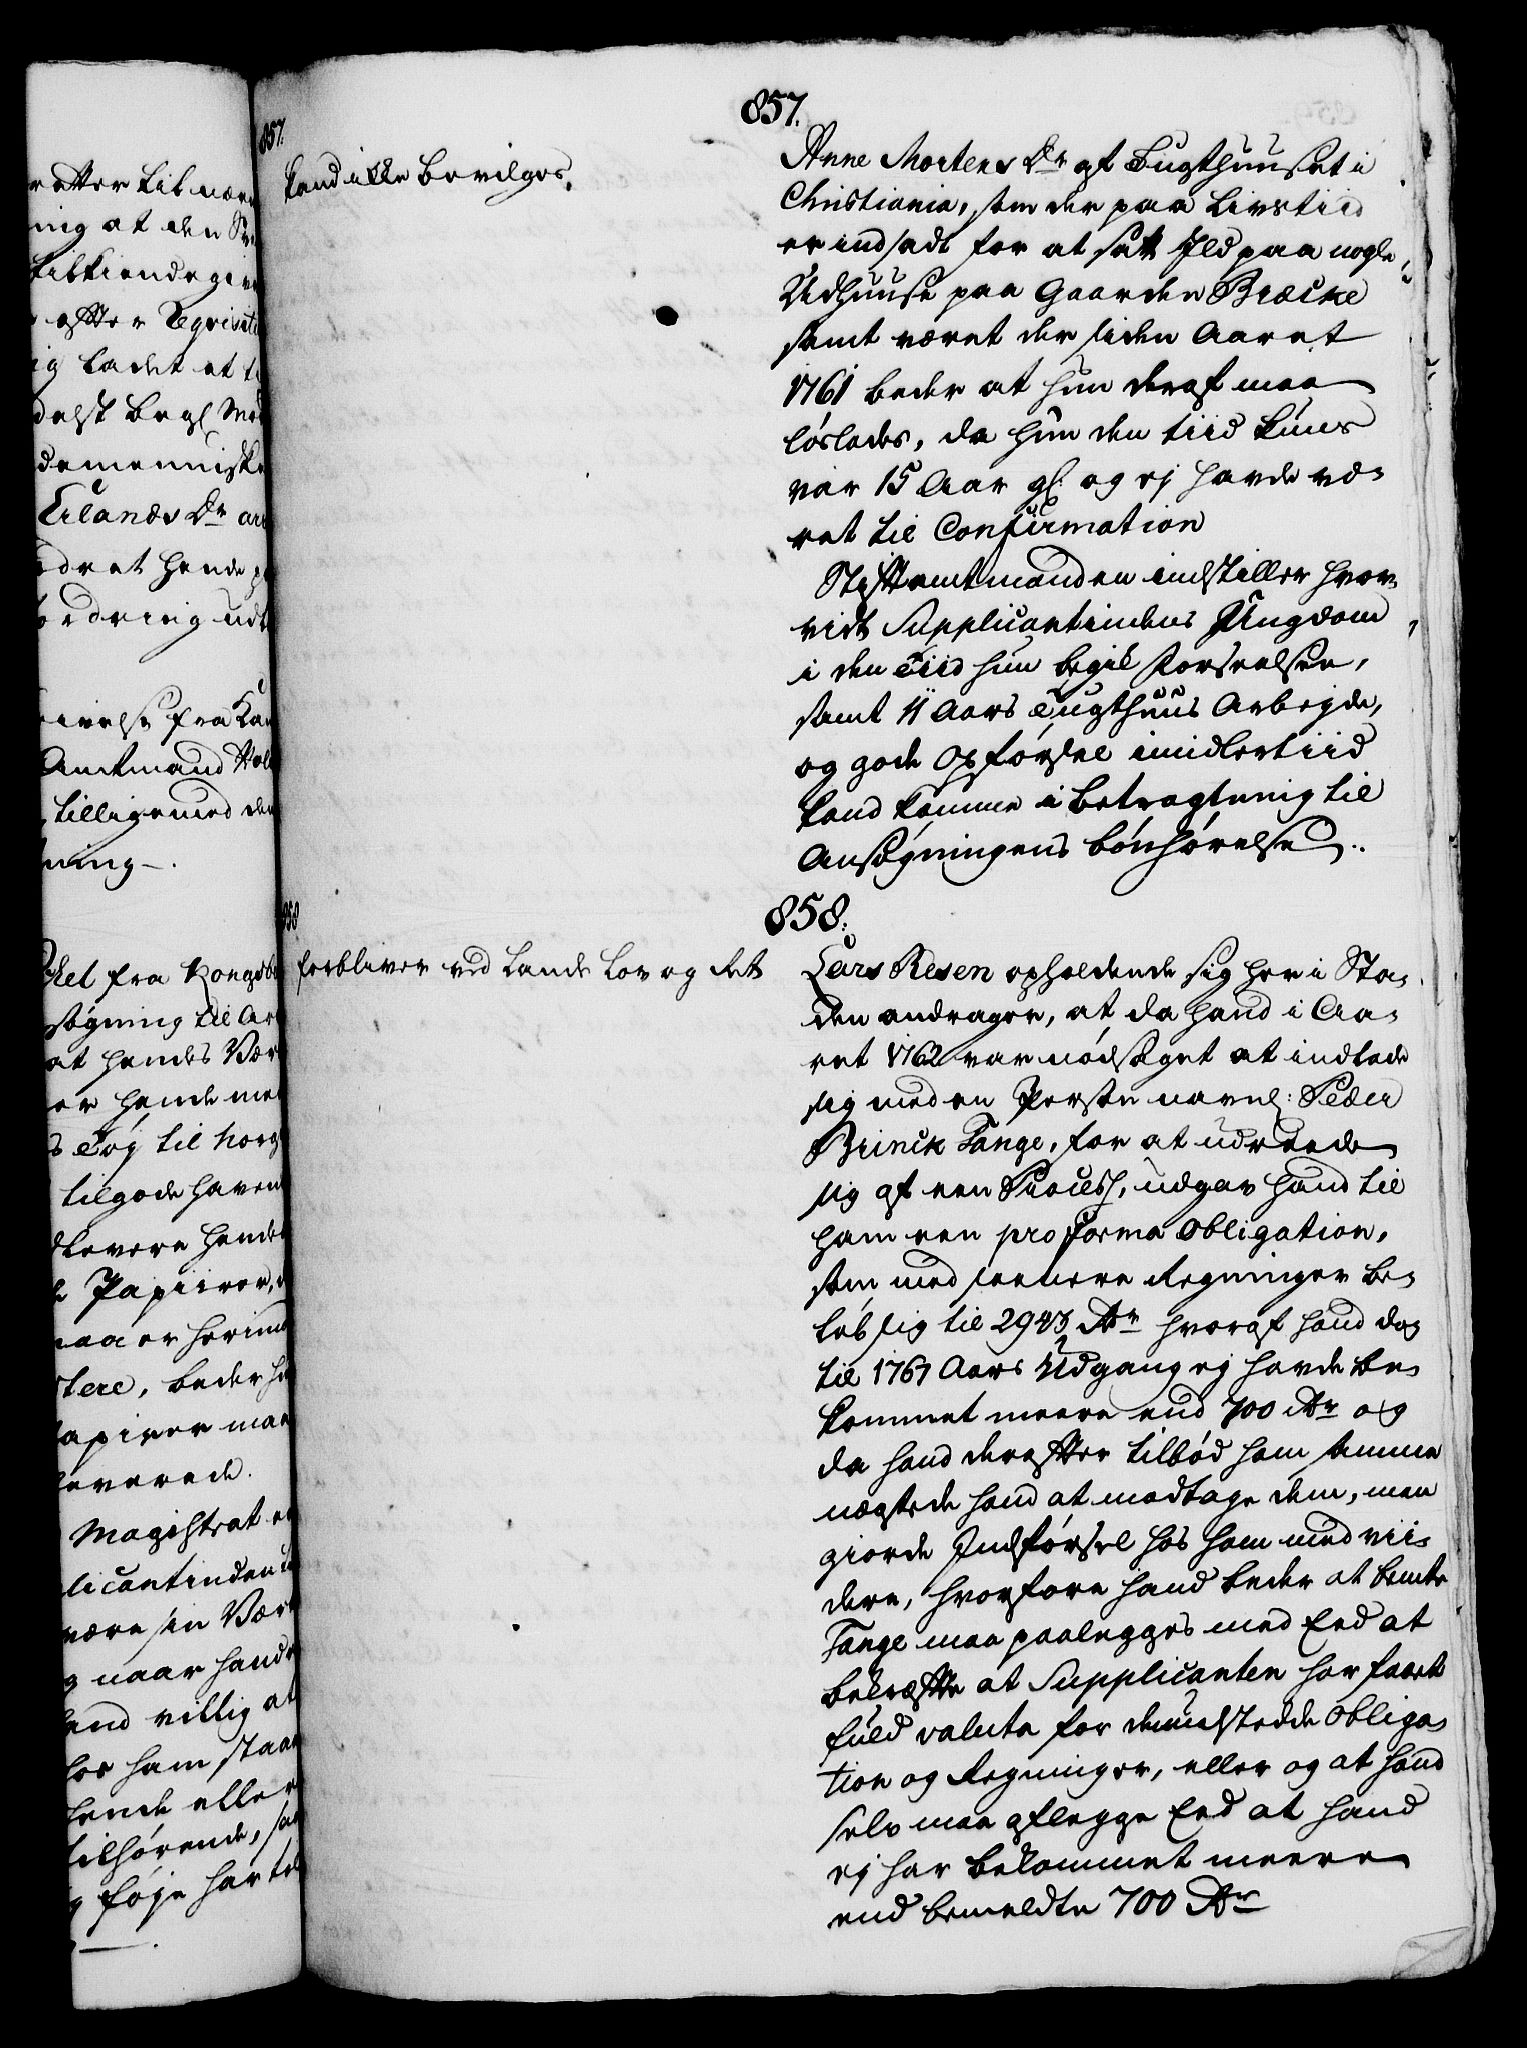 857.
857.
Kand ikke bevilges.
Anne Mortens Dr af Tugthuuset i
Christiania, som der paa Livstiid
er indsadt for at satt Ild paa nogle
Udhuuse paa Gaarden Bræcke
samt været der siden Aaret
1761 beder at hun deraf maa
løslades, da hun den tiid kuns
var 15 Aar gl: og ej havde væ-
ret til Confirmation
Stiftamtmanden indstiller hvor-
vidt Supplicantindens Ungdom
i den Tiid hun begik Forseelsen,
samt 11 Aars Tugthuus Arbejde,
og gode Opførsel imidlertiid
kand komme i betragtning til
Ansøgningens bønhørelse.
858
858.
forbliver ved Lands Lov og Ret
Lars Resen opholdende sig her i Sta-
den andrager, at da hand i Aa-
ret 1762 var nødsaget at indlade
sig med en Persohn navnl: Peder
Brinck Tange, for at udreede
sig af een Process, udgav hand til
ham een pro forma Obligation,
som med seenere Regninger be-
løb sig til 2943 Rdr hvoraf hand dog
til 1767 Aars Udgang ej havde be-
kommet meere end 700 Rdr og
da hand derefter tilbød ham samme
nægtede hand at modtage dem, men
giorde Indførsel hos ham med vii-
dere, hvorfore hand beder at bemte
Tange maa paalegges med Eed at
bekræfte at Supplicanten har faaet
fuld valuta for den udstedde Obliga-
tion og Regninger, eller og at hand
selv maa aflegge Eed at hand
ej har bekommet meere
end bemeldte 700 Rdr